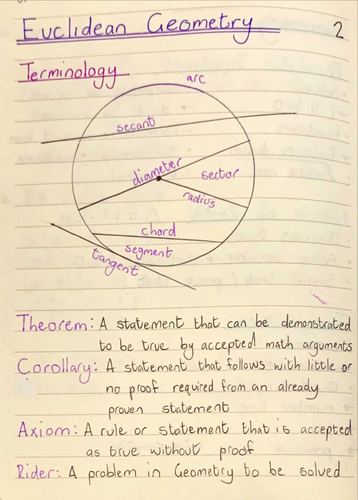 Euclidean Geometry
2
Terminology
arc
secant
diameter
sector
radius
chord
segment
tangent
Theorem: A statement that can be demonstrated
to be true by accepted math arguments
Corollary: A statement that follows with little or
no proof required from an already
proven statement
Axiom: A rule or statement that is accepted
as true without proof
Rider: A problem in Geometry to be solved